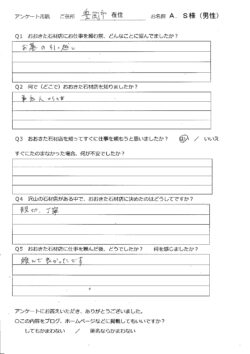 アンケート用紙 ご住所 豊岡市 在住 お名前 A. S様（男性）
Q1 おおきた石材店にお仕事を頼む前、どんなことに悩んでましたか？
お墓の引っ越し
Q2 何で（どこで）おおきた石材店を知りましたか？
Q3 おおきた石材店を知ってすぐに仕事を頼もうと思いましたか？ はい / いいえ
すぐにたのまなかった場合、何が不安でしたか？
Q4 沢山の石材店がある中で、おおきた石材店に決めたのはどうしてですか？
親切、丁寧
Q5 おおきた石材店に仕事を頼んだ後、どうでしたか？ 何を感じましたか？
頼んで良かったです
アンケートにお答えいただき、ありがとうございました。
○この内容をブログ、ホームページなどに掲載してもいいですか？
してもかまわない / 匿名ならかまわない